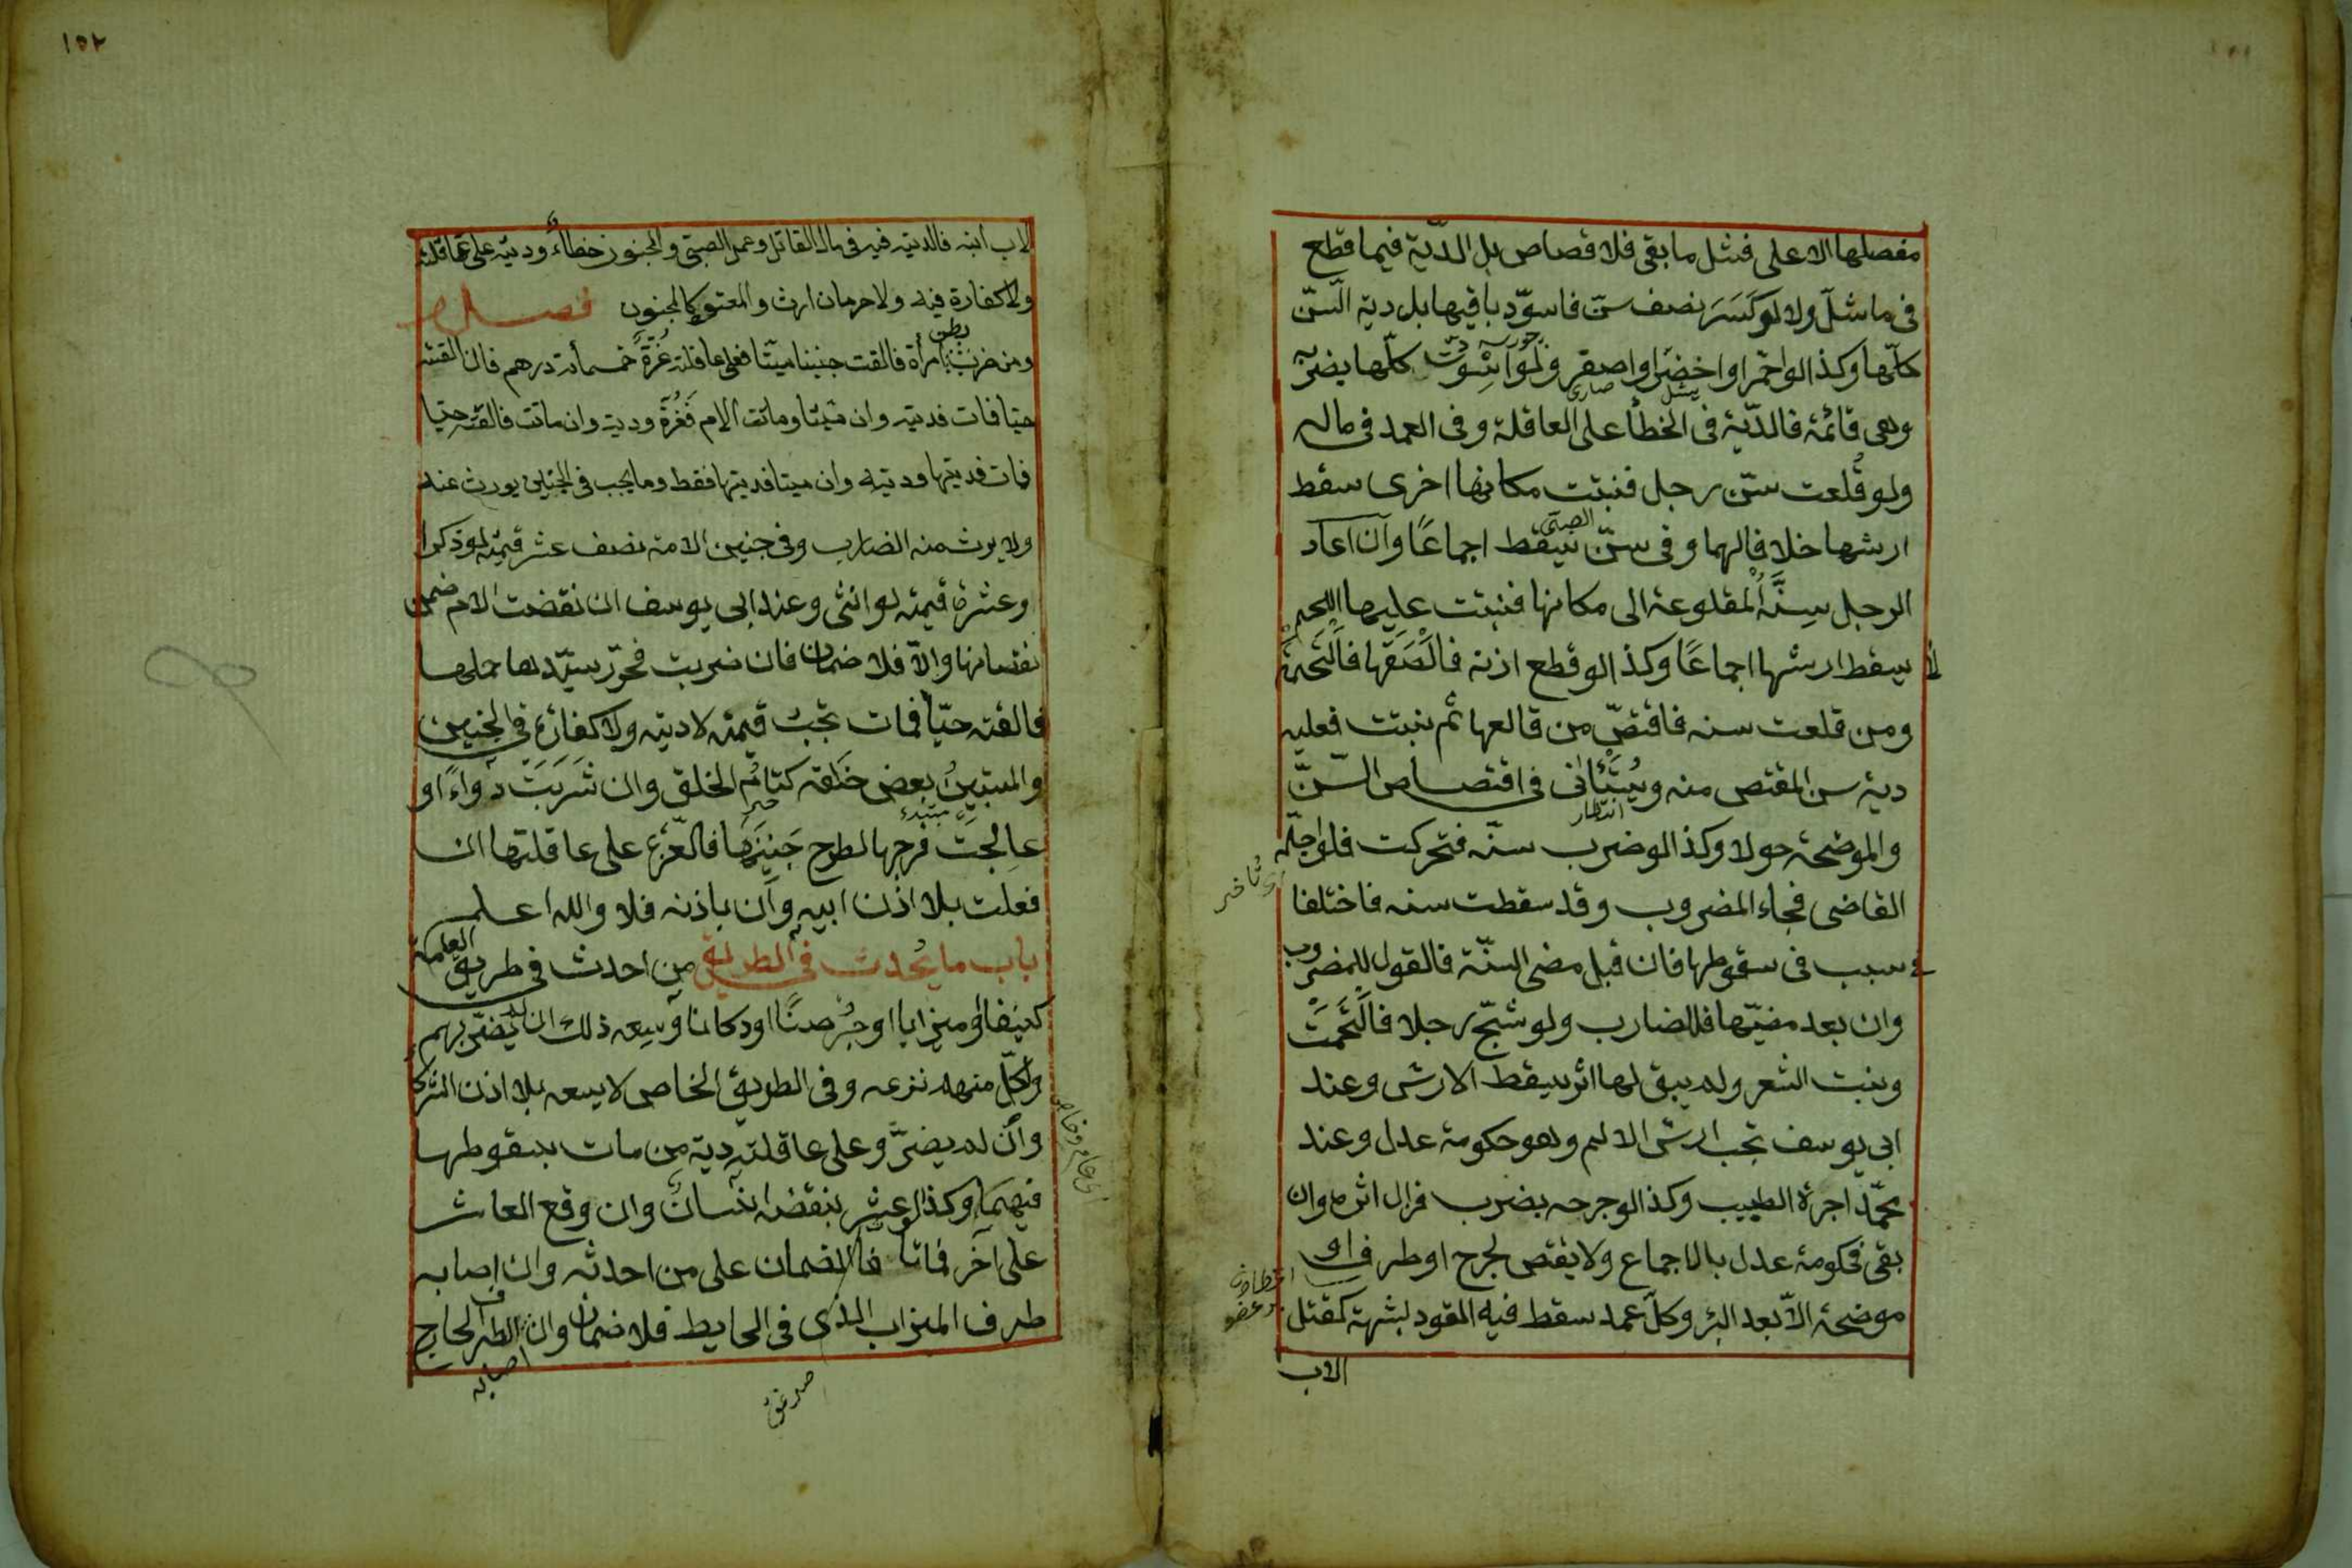 مفصلها الاعلى فشل ما بقى فلا قصاص بل الدّية فيما قطع
فى ما شلّ ولا لو كَسَرَ نصف سنّ فاسودّ باقيها بل دية السّنّ
كلّها وكذا لو احمّر او اخضرّ او اصفر ولو اسودّت كلّها بضربة
وهى قائمة فالدّية فى الخطأ على العاقلة وفى العمد فى ماله
ولو قُلعت سنّ رجل فنبتت مكانها اخرى سقط
ارشها خلافا لهما وفى سنّ الصبى يسقط اجماعًا وان اعاد
الرجل سِنَّهُ المقلوعة الى مكانها فنبتت عليها اللحم
لا يسقط ارشها اجماعًا وكذا لو قطع اذنه فالصقها فالتحمت
ومن قلعت سنه فاقتصّ من قالعها ثم نبتت فعليه
دية سن المقتص منه ويُستأنى فى اقتصاص السّنّ
انتظار
والموضحة حولا وكذا لو ضرب سنّه فتحركت فلو اجّله
اى تاخير
القاضى فجاء المضروب وقد سقطت سنه فاختلفا
فى سبب فى سقوطها فان قبل مضى السنّة فالقول للمضروب
وان بعد مضيّها فللضارب ولو شجّ رجلا فالتحمت
ونبت الشعر ولم يبق لها اثر يسقط الارش وعند
ابى يوسف تجب ارش الالم وهو حكومة عدل وعند
محمّد اجرة الطبيب وكذا لو جرحه بضرب فزال اثره وان
بقى فحكومة عدل بالاجماع ولا يقتص لجرح او طرف او
موضحة الاّ بعد البرء وكلّ عمد سقط فيه القود لشبهة كقتل
الاب
١٥٢
الاب ابنه فالدية فيه فى مال القاتل وعمد الصبىّ والمجنون خطاءٌ وديته على عاقلته
ولا كفارة فيه ولا حرمان ارث والمعتوه كالمجنون فصل
ومن ضرب بطن امرأة فالقت جنينا ميّتا فعلى عاقلته غُرّةٌ خمسمأة درهم فان القته
حيّا فمات فدية وان ميّتا وماتت الام فَغُرّةٌ ودية وان ماتت فالقته حيا
فمات فديتها وديته وان ميتا فديتها فقط وما يجب فى الجنين يورث عنه
ولا يرث منه الضارب وفى جنين الامة نصف عشر قيمته لو ذكرا
وعشرة قيمته لو انثى وعند ابى يوسف ان نقضت الام ضمن
نقصانها والاّ فلا ضمان فان ضربت فحرّر سيّدها حملها
فالقته حيّا فمات تجب قيمته لا ديته ولا كفارة فى الجنين
والمستبين بعض خلقه كتامّ الخلق وان شَرِبَتْ دواءً او
عالجت فرجها لطرح جنينها فالغرّة على عاقلتها ان
فعلت بلا اذن ابيه وان باذنه فلا والله اعلم
باب ما يُحدث فى الطريق من احدث فى طريق العامة
كنيفا او ميزابا او جُرصنًا او دكانا وسعه ذلك ان لم يضرّ بهم
ولكلّ منهم نزعه وفى الطريق الخاص لا يسعه بلا اذن الشركا
وان لم يضرّ وعلى عاقلته دية من مات بسقوطها
اى عام وخاص
فيهما وكذا لو عثر بنقضه انسان وان وقع العاثر
على آخر فماتا فالضمان على من احدثه وان اصابه
طرف الميزاب الذى فى الحايط فلا ضمان وان الطرف الخارج
اصابه